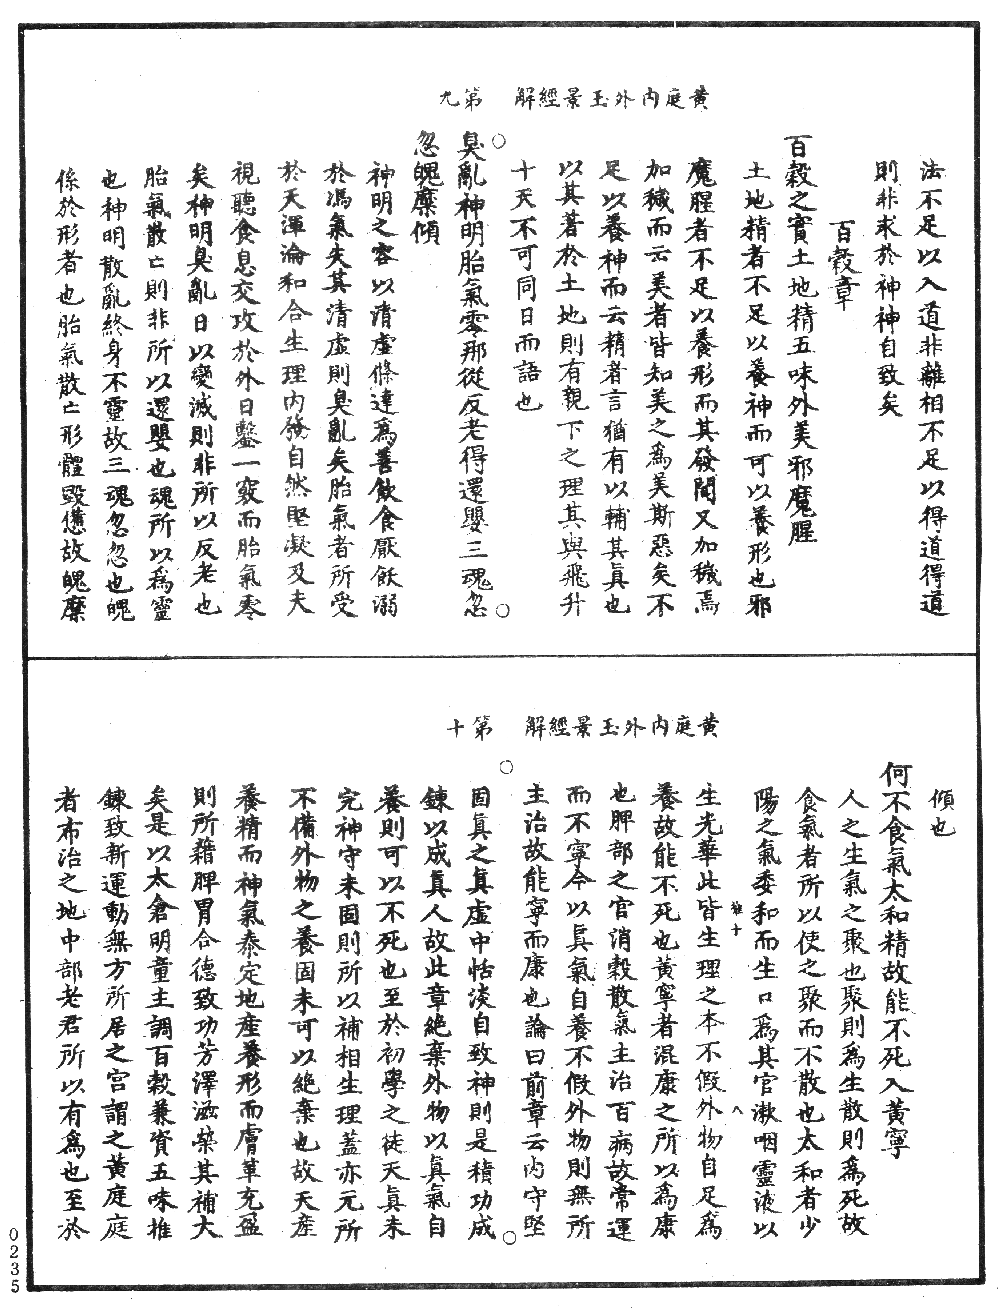 黃庭內外玉景經解　第九
法不足以入道非離相不足以得道得道
則非求於神神自致矣
百穀章
百穀之實土地精五味外美邪魔腥
土地精者不足以養神而可以養形也邪
魔腥者不足以養形而其發聞又加穢焉
加穢而云美者皆知美之為美斯惡矣不
足以養神而云精者言猶有以輔其真也
以其著於土地則有親下之理其與飛升
十天不可同日而語也
臭亂神明胎氣零那從反老得還嬰三魂忽
忽魄糜傾
神明之容以清虛條達為善飲食厭飫溺
於馮氣失其清虛則臭亂矣胎氣者所受
於天渾淪和合生理內發自然堅凝及夫
視聽食息交攻於外日鑿一竅而胎氣零
矣神明臭亂日以變滅則非所以反老也
胎氣散亡則非所以還嬰也魂所以為靈
也神明散亂終身不靈故三魂忽忽也魄
係於形者也胎氣散亡形體毀憊故魄糜
黃庭內外玉景經解　第十
傾也
何不食氣太和精故能不死入黃寧
人之生氣之聚也聚則為生散則為死故
食氣者所以使之聚而不散也太和者少
陽之氣委和而生口為其官漱咽靈液以
生光華此皆生理之本不假外物自足為
養故能不死也黃寧者混康之所以為康
也脾部之官消穀散氣主治百病故常運
而不寧今以真氣自養不假外物則無所
主治故能寧而康也論曰前章云內守堅
固真之真虛中恬淡自致神則是積功成
鍊以成真人故此章絕棄外物以真氣自
養則可以不死也至於初學之徒天真未
完神守未固則所以補相生理蓋亦元所
不備外物之養固未可以絕棄也故天產
養精而神氣泰定地產養形而膚革充盈
則所藉脾胃合德致功芳澤滋榮其補大
矣是以太倉明童主調百穀兼資五味推
鍊致新運動無方所居之宮謂之黃庭庭
者布治之地中部老君所以有為也至於
0235